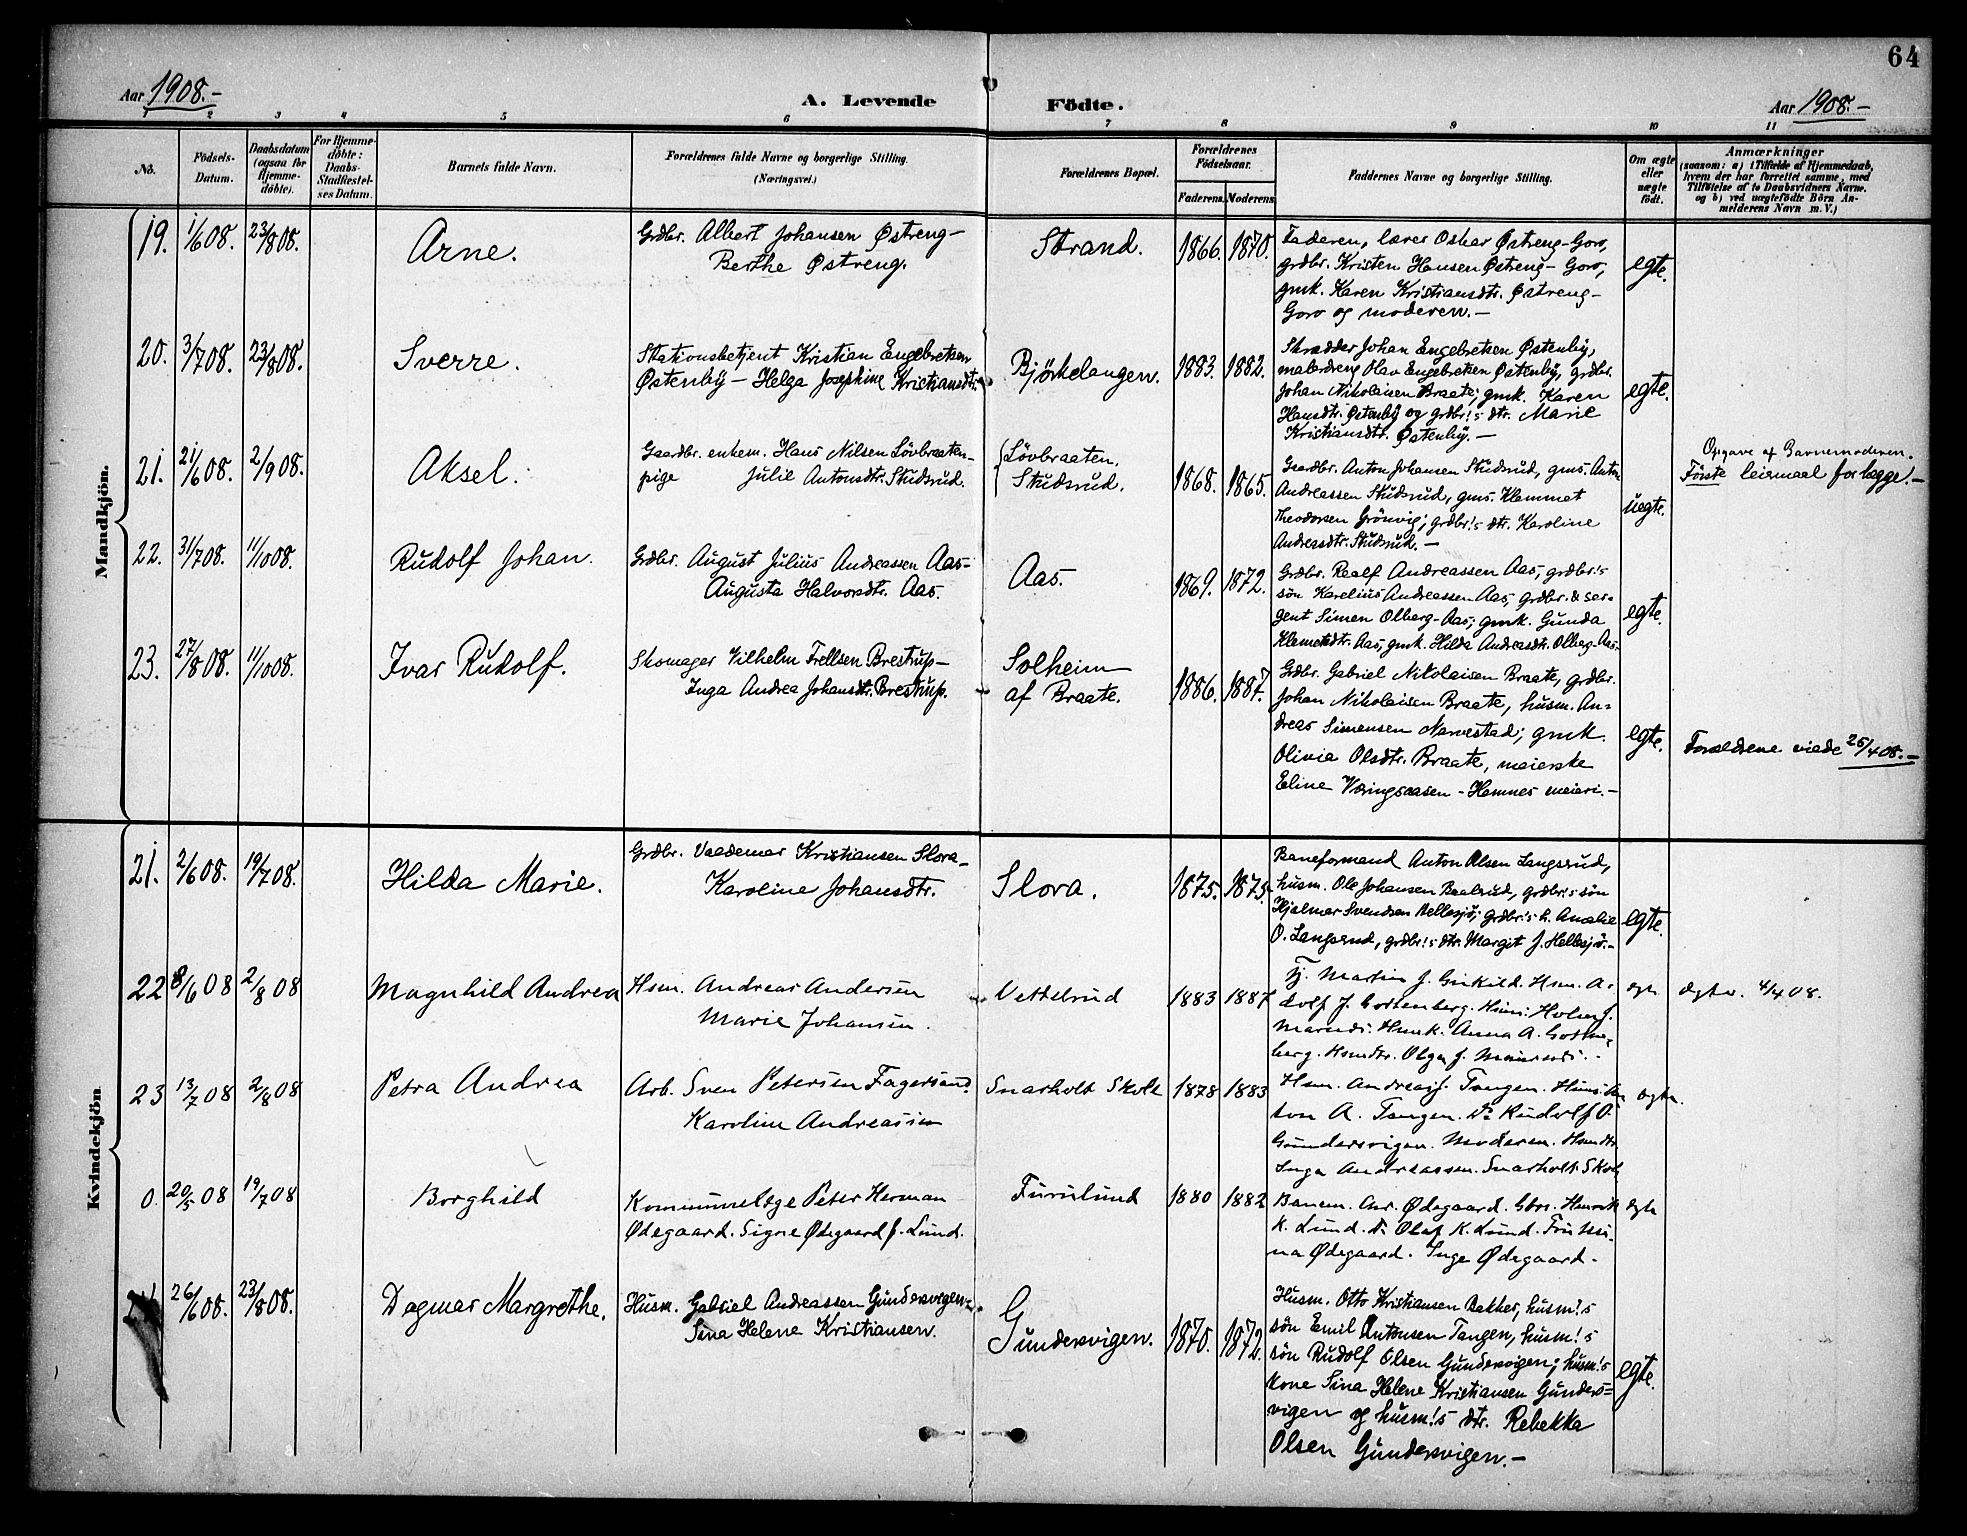 64
Aar 1908.-
A. Levende
Födte.
Aar 1908.-
1 2 3 4 5 6 7 8 9 10 11
No.
Födsels-
Datum.
Daabsdatum
(ogsaa for
Hjemme-
döbte).
For Hjemme-
döbte:
Daabs-
Stadfæstel-
ses Datum.
Barnets fulde Navn.
Forældrenes fulde Navne og borgerlige Stilling.
(Næringsvei.)
Forældrenes Bopæl.
Forældrenes
Födselsaar.
Faderens. Moderens.
Faddernes Navne og borgerlige Stilling.
Om ægte
eller
uægte
födt.
Anmærkninger
(saasom: a) i Tilfælde af Hjemmedaab,
hvem der har forrettet samme, med
Tilföielse af to Daabsvidners Navne.
og b) ved uægtefödte Börn An-
melderens Navn m. V.)
Mandkjön.
19. 1/6 08. 23/8 08.
Arne.
Grdbr. Albert Johansen Østreng-
Berthe Østreng.
Strand.
1866. 1870.
Faderen, lærer Oskar Østreng-Goro,
grdbr. Kristen Hansen Østreng-Goro,
gmk. Karen Kristiansdtr. Østreng-
Goro og moderen.-
egte.
20. 3/7 08. 23/8 08.
Sverre.
Stationsbetjent Kristian Engebretsen
Østenby - Helga Josephine Kristiansdtr.
Bjørkelangen.
1883. 1882.
Skrædder Johan Engebretsen Østenby,
malerdreng Olav Engebretsen Østenby, grdbr.
Johan Nikolaisen Braate; gmk. Karen
Hansdtr. Østenby og grdbr!s dtr. Marie
Kristiansdtr. Østenby.-
egte.
21. 21/6 08. 2/9 08.
Aksel.
Gaardbr. enkem. Hans Nilsen Lövbraaten-
pige Julie Antonsdtr. Studsrud.
Lövbraaten.
Studsrud.
1868. 1865.
Gaardbr. Anton Johansen Studsrud, gms. Anton
Andreassen Studsrud, gms. Klemmet
Theodorsen Grönvig; grdbr!s dtr. Karoline
Andreasdtr. Studsrud.-
uegte.
Opgave af Barnemoderen.
Første leiermaal for begge.-
22. 31/7 08. 11/10 08.
Rudolf Johan.
Grdbr. August Julius Andreassen Aas-
Augusta Halvorsdtr. Aas.
Aas.
1869. 1872.
Grdbr. Realf Andreassen Aas, grdbr.s
sön Karelius Andreassen Aas, grdbr. & ser-
gent Simen Olberg-Aas; gmk. Gunda
Klemetsdtr. Aas, gmk. Hilda Andreasdtr. Olberg-Aas.
egte.
23. 27/8 08. 11/10 08.
Ivar Rudolf.
Skomager Vilhelm Frellsen Brestrup-
Inga Andrea Johansdtr. Brestrup.
Solheim
af Braate.
1886. 1887.
Grdbr. Gabriel Nikolaisen Braate, grdbr.
Johan Nikolaisen Braate, husm. An-
dreas Simensen Narvestad; gmk.
Olivia Olsdtr. Braate, meierske
Eline Væringsaasen - Hemnes meieri.-
egte.
Forældrene viede 25/4 08.-
Kvindekjön
21. 2/6 08. 19/7 08.
Hilda Marie.
Grdbr. Valdemar Kristiansen Slora-
Karoline Johansdtr.
Slora.
1875. 1875.
Baneformand Anton Olsen Langsrud,
husm. Ole Johansen Baalsrud, grdbr!s sön
Hjalmar Svendsen Hellesjö; grdbr.s h. Amalie
O. Langsrud, grdbr!s dtr. Margit J. Hellesjö.-
egte.
22 8/6 08 2/8 08
Magnhild Andrea
Hsm. Andreas Andersen
Marie Johansen.
Vettelrud
1883 1887
Tj. Martin J. Hsm. A-
dolf J.
Hsmk. Anna A.
berg. Hsmdtr. Olga J.
egte
Ægtev. 4/4 08.
23 13/7 08 2/8 08
Petra Andrea
Arb. Sven Petersen Fagersand.
Karoline Andreassen
Snarholt Skole
1878 1883
Hsm. Andreas J. Tangen. Hsms: An-
ton A. Tangen. Do Rudolf O.
Gundersvigen. Moderen. Hsmdtr.
Inga Andreassen. Snarholt Skole
egte.
0. 20/5 08 19/7 08
Borghild
Kommunelæge Peter Herman
Ødegaard. Signe Ødegaard f. Lund.
Furulund
1880 1882
Banem. Ødegaard. Henrik
K. Lund. do Olaf K. Lund. Fru
na Ødegaard. Inge Ødegaard.
egte
26/6 08. 23/8 08.
Dagmar Margrethe.
Husm. Gabriel Andreassen Gundersvigen-
Sina Helene Kristiansen.
Gundersvigen.
1870. 1872.
Husm. Otto Kristiansen Bakker, husm!s
sön Emil Antonsen Tangen, husm!s
sön Rudolf Olsen Gundersvigen; husm!s
kone Sina Helene Kristiansen Gunders-
vigen og husm!s dtr. Rebekka
Olsen Gundersvigen.-
egte.